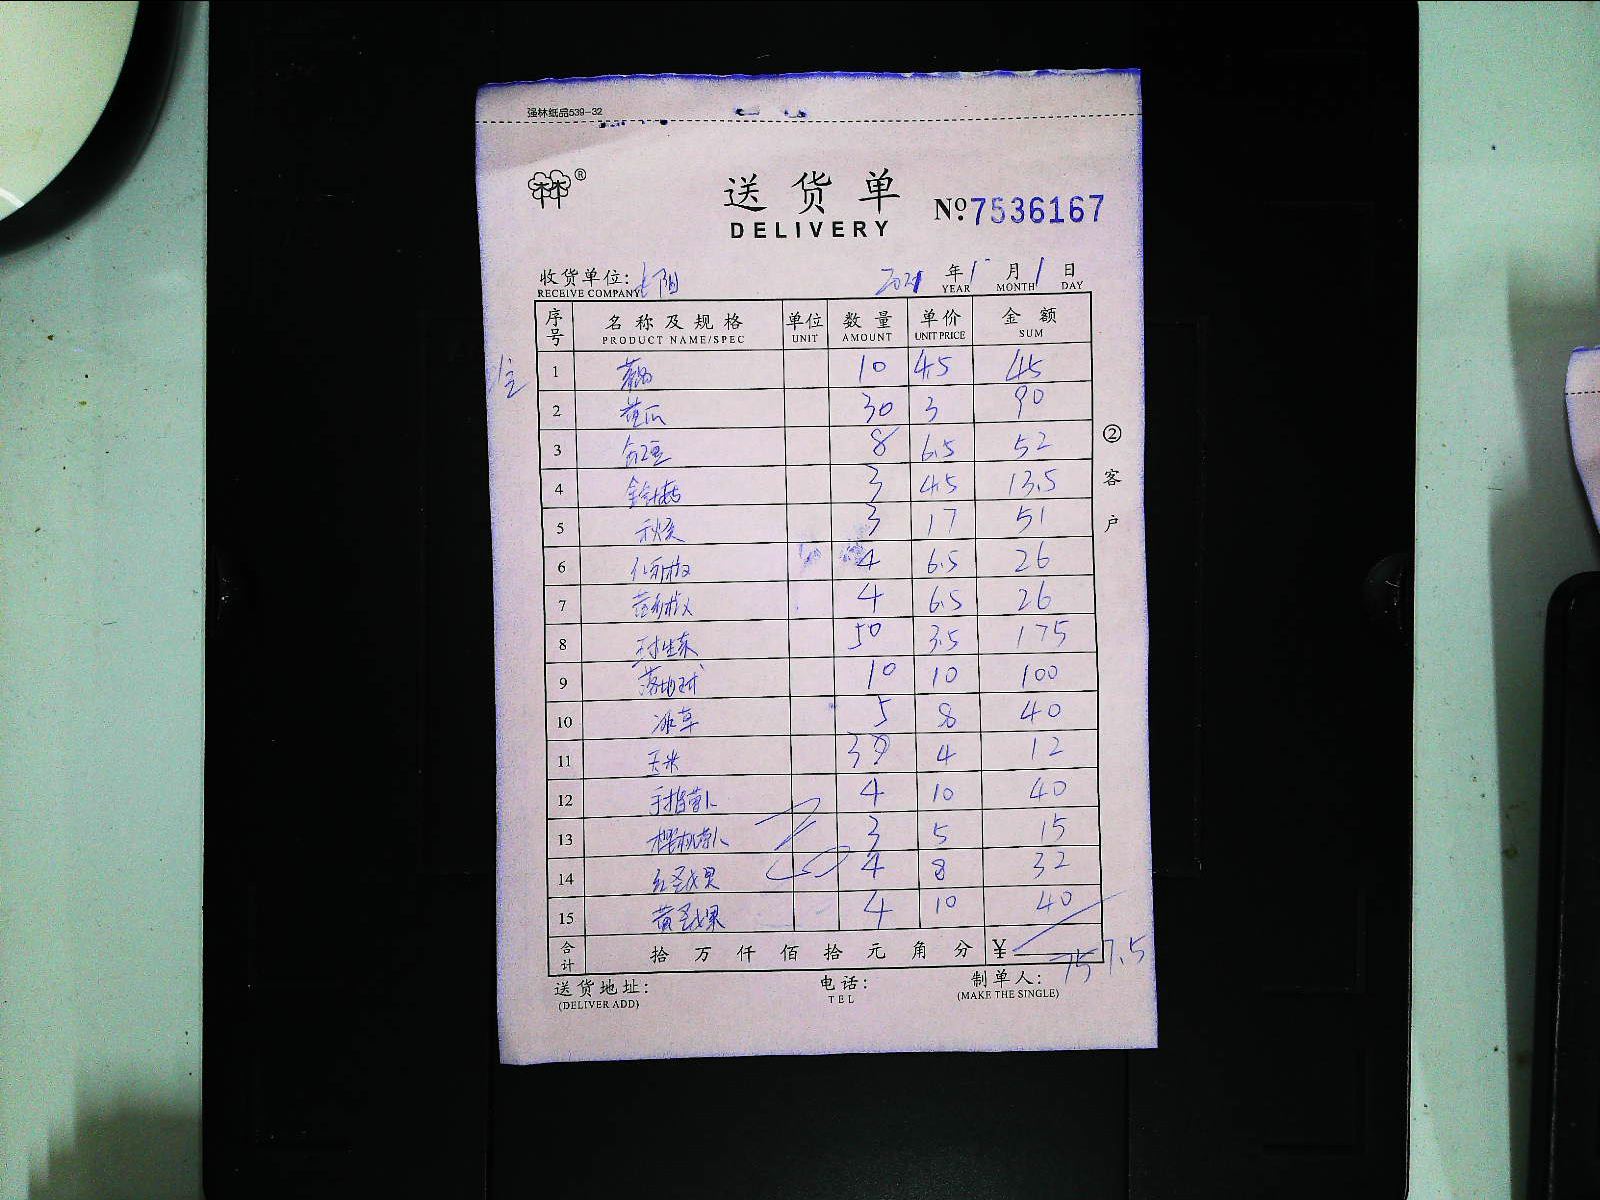 强林纸品539-32
林®
送货单
DELIVERY
№7536167
收货单位:
RECEIVE COMPANY
2021 年 1 月 1 日
YEAR MONTH DAY
序号 名称及规格 单位 数量 单价 金额
PRODUCT NAME/SPEC UNIT AMOUNT UNIT PRICE SUM
1 10 4.5 45
2 黄瓜 30 3 90
3 8 6.5 52
4 3 4.5 13.5
5 秋葵 3 17 51
6 4 6.5 26
7 4 6.5 26
8 球生菜 50 3.5 175
9 10 10 100
10 冰草 5 8 40
11 玉米 4 12
12 手指萝卜 4 10 40
13 樱桃萝卜 3 5 15
14 红圣女果 4 8 32
15 黄圣女果 4 10 40
合计 拾万仟佰拾元角分 ¥ 757.5
送货地址: 电话: 制单人:
(DELIVER ADD) TEL (MAKE THE SINGLE)
②客户